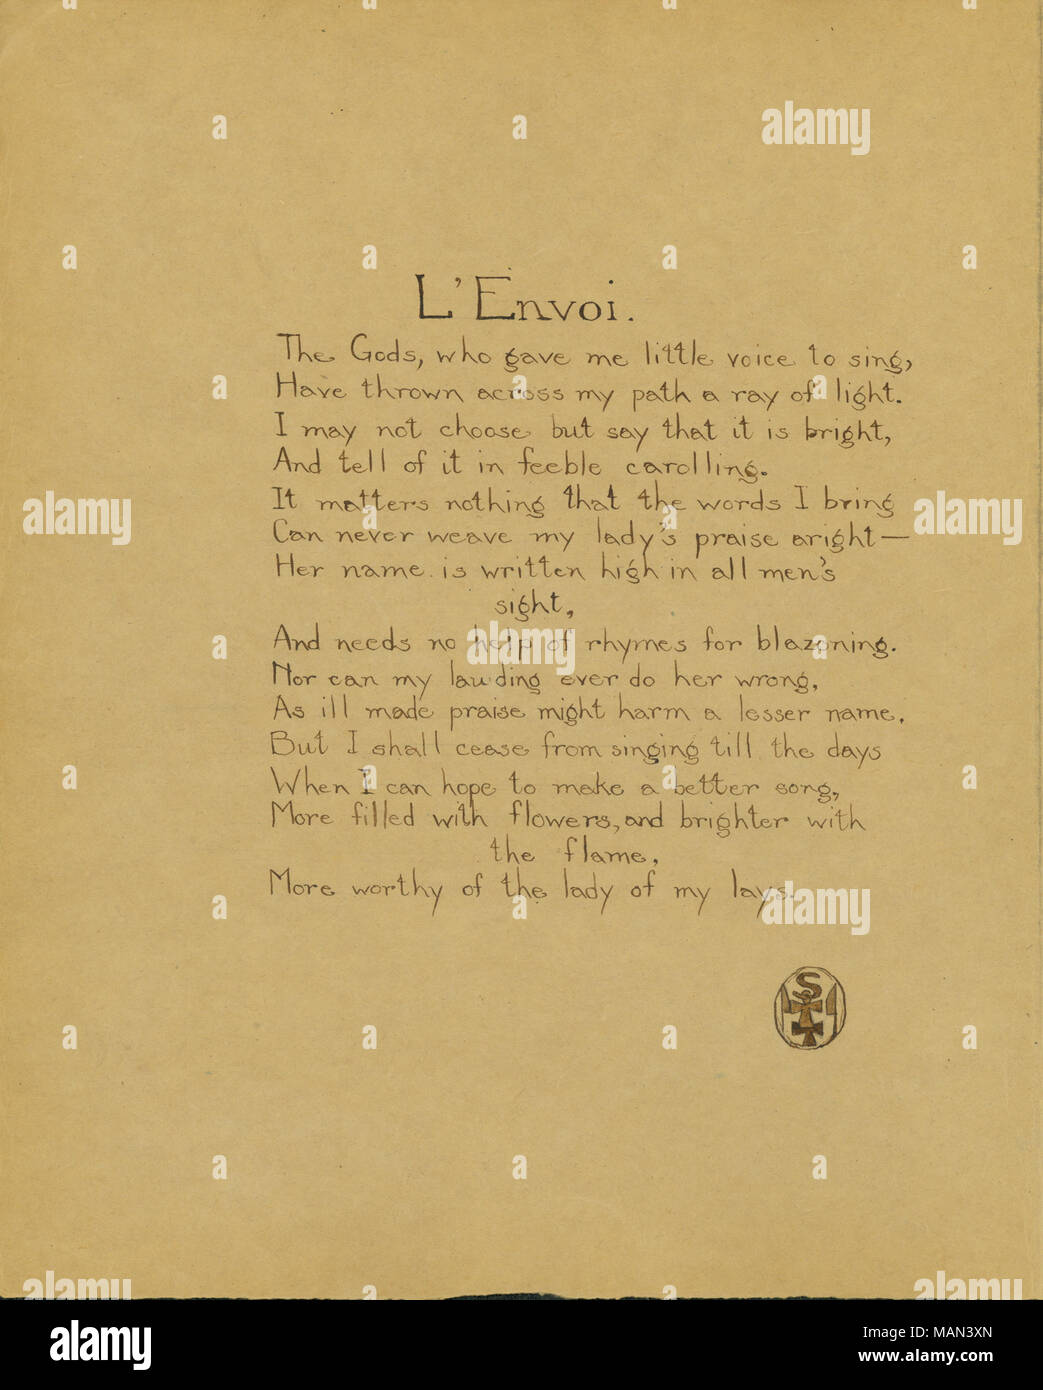 L'Envoi.
The Gods, who gave me little voice to sing,
Have thrown across my path a ray of light.
I may not choose but say that it is bright,
And tell of it in feeble carolling.
It matters nothing that the words I bring
Can never weave my lady's praise aright—
Her name is written high in all men's
sight,
And needs no help of rhymes for blazoning.
Nor can my lauding ever do her wrong,
As ill made praise might harm a lesser name.
But I shall cease from singing till the days
When I can hope to make a better song,
More filled with flowers, and brighter with
the flame,
More worthy of the lady of my lays.
S
alamy
Image ID: MAN3XN
www.alamy.com